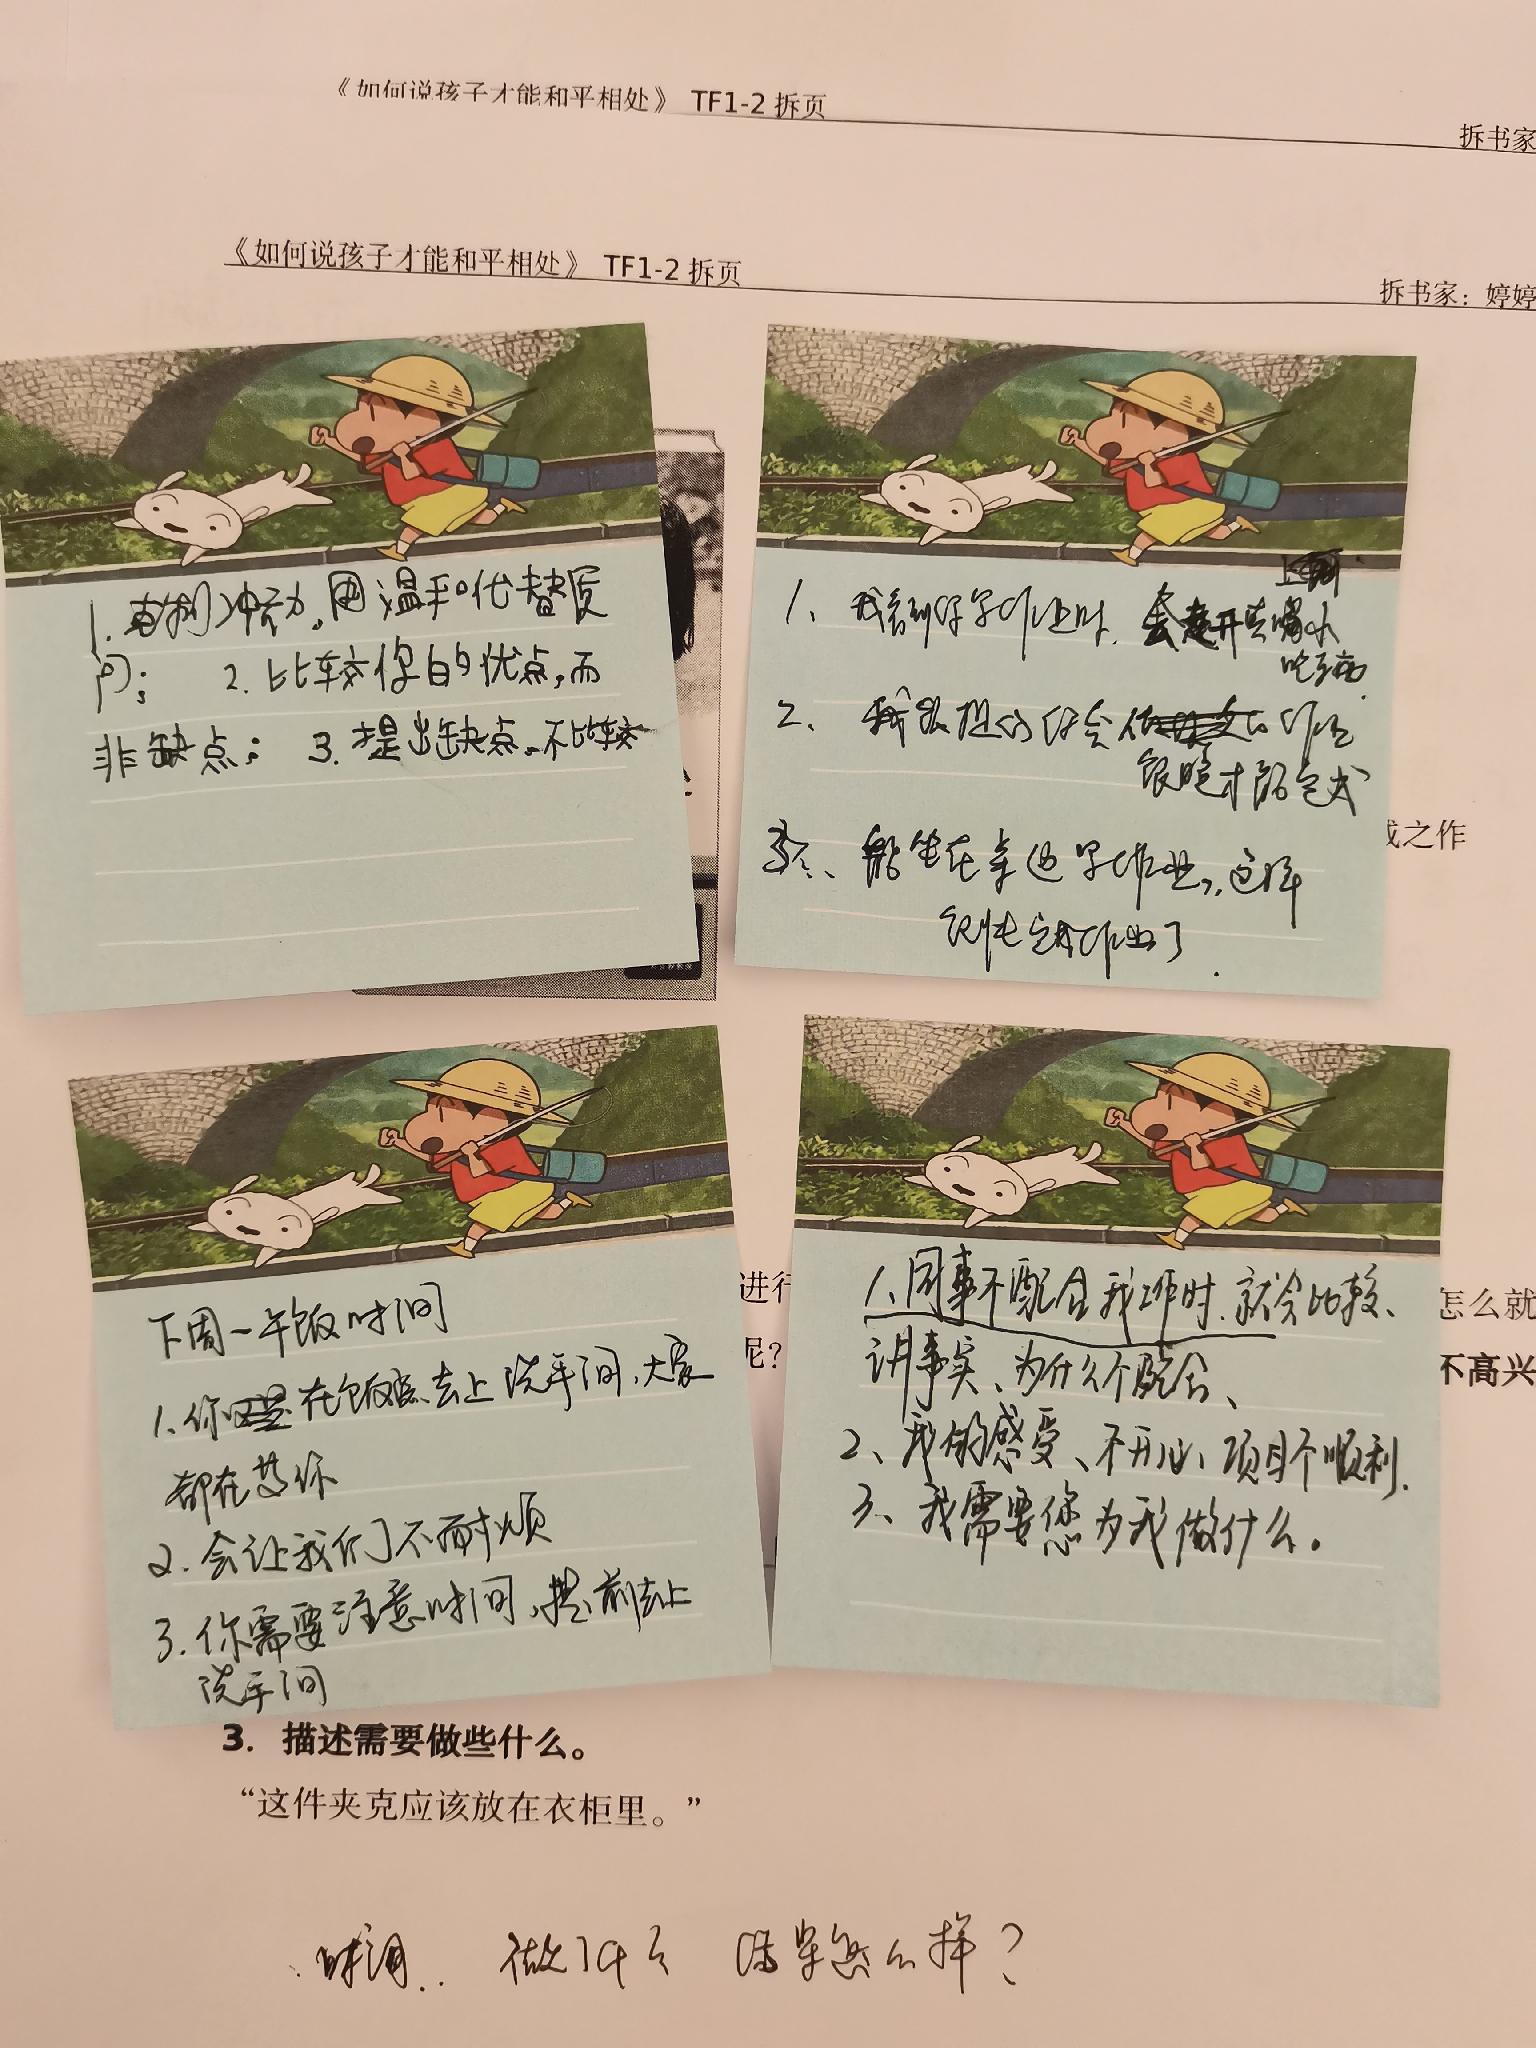 《如何说孩子才能和平相处》 TF1-2 拆页
拆书家
《如何说孩子才能和平相处》 TF1-2 拆页
拆书家：婷婷
1. 克制冲动，用温和代替质
问； 2. 比较你的优点，而
非缺点； 3. 提出缺点，不比较
1、我看到你写作业时，会离开去喝水
吃东西
2、我很担心你会作业
很晚才能完成
3、能坐在桌边写作业，这样
很快完成作业了.
成之作
下周一午饭时间
1. 你在饭点去上洗手间，大家
都在等你
2. 会让我们不耐烦
3. 你需要注意时间，提前去上
洗手间
1、同事不配合我工作时，就会比较、
讲事实、为什么不配合、
2、我的感受、不开心、项目不顺利.
3、我需要您为我做什么。
进行
怎么就
呢？
不高兴
3. 描述需要做些什么。
“这件夹克应该放在衣柜里。”
时间.. 做了什么 结果怎么样？